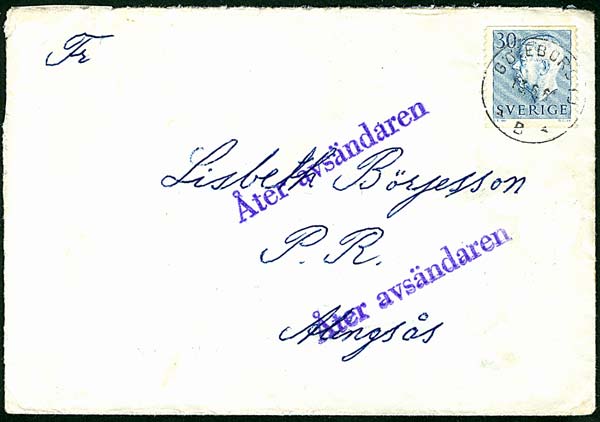 30
GÖTEBORG
SVERIGE
B
Fr
Åter avsändaren
Lisbeth Börjesson
P. R.
Åter avsändaren
Alingsås